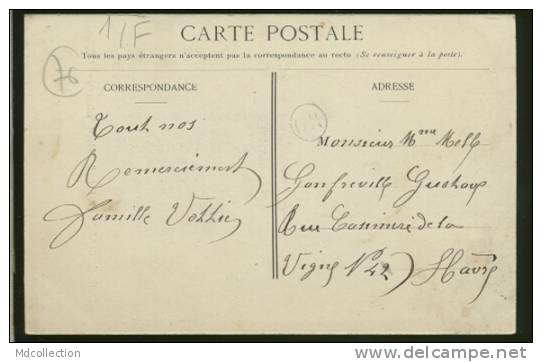 1/F
CARTE POSTALE
Tous les pays étrangers n'acceptent pas la correspondance au recto (Se renseigner à la poste).
76
CORRESPONDANCE
ADRESSE
Tout nos
Remerciement
famille
Monsieur Mme Melle
Gonfreville Gustave
Rue Casimire de la
Vigne No 42 Havre
Mdcollection
www.delcampe.net